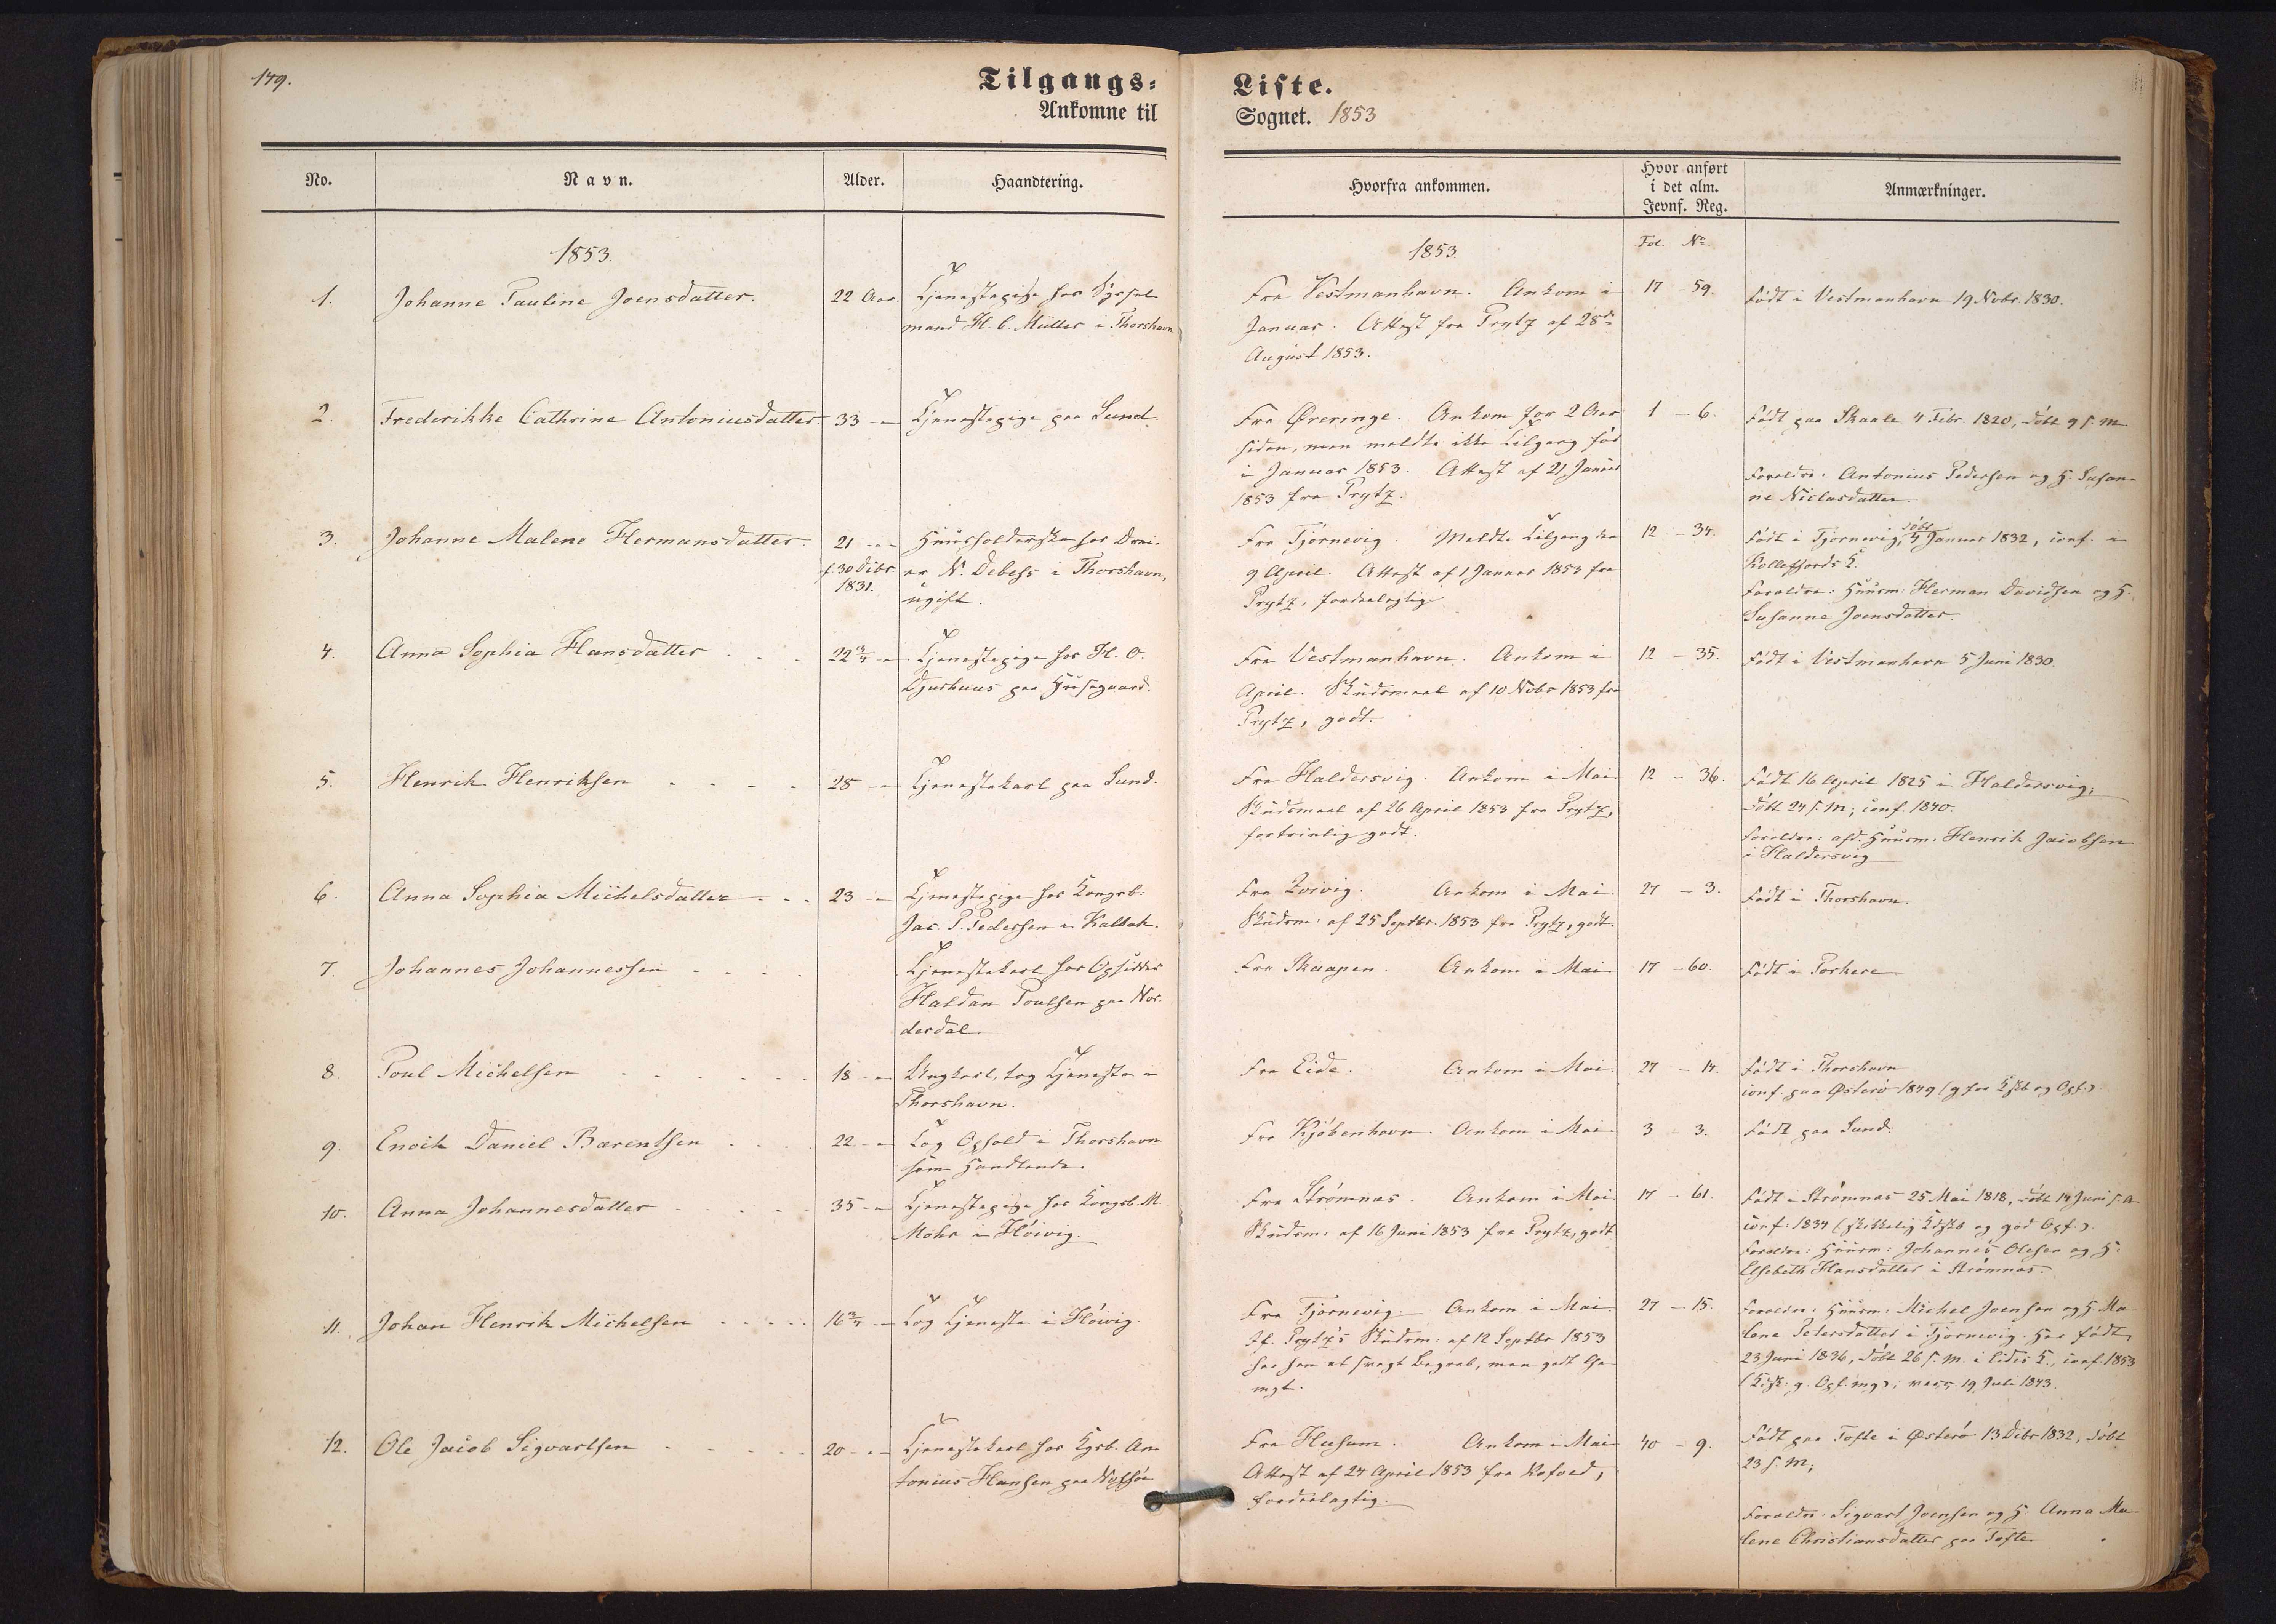 179.
Tilgangs-
Ankomne til
No.
Navn.
Alder.
Haandtering.
1853.
1.
Johanne Pauline Joensdatter.
22 Aar.
Tjenestepige hos
mand H. C. Müller i Thorshavn
2.
Frederikke Cathrine Antoniusdatter
33 -
Tjenestepige paa Sund
3.
Johanne Malene Hermansdatter.
21 -
f. 30 Decbr.
1831.
Huusholderske hos
N. Debess i Thorshavn,
ugift.
4.
Anna Sophia Hansdatter
22 3/4 -
Tjenestepige hos H. O.
Djurhuus paa Huusgaard.
5.
Henrik Henriksen
28 -
Tjenestekarl paa Sund.
6.
Anna Sophia Michelsdatter
23 -
Tjenestepige hos Kongsb:
Jac. P. Pedersen i Kalbak.
7.
Johannes Johannessen
Tjenestekarl hos Opsidder
Haldan Poulsen paa Nor-
derdal.
8.
Poul Michelsen
18 -
Ungkarl, tog Tjeneste i
Thorshavn.
9.
Enoch Daniel Bærentsen
22 -
Tog Ophold i Thorshavn
som Handlende.
10.
Anna Johannesdatter
35 -
Tjenestepige hos Kongsb. M.
Mohr i Höivig.
11.
Johan Henrik Michelsen
16 3/4 -
Tog Tjeneste i Höivig.
12.
Ole Jacob Sigvartsen
20 -
Tjenestekarl hos Kgsb. An-
tonius Hansen paa Nolsöe
Liste.
Sognet. 1853
Hvorfra ankommen.
Hvor anført
i det alm.
Jevnf. Reg.
Anmærkninger.
1853.
Fol. No.
Fra Vestmanhavn. Ankom i
Januar. Attest fra Prytz af 28de
August 1853.
17 - 59.
Født i Vestmanhavn 19 Novbr. 1830.
Fra Øreringe. Ankom for 2 Aar
siden, men meldte ikke Tilgang før
i Januar 1853. Attest af 21 Januar
1853 fra Prytz.
1 - 6.
Født paa Skaale 4 Febr. 1820, döbt 9 s. M.
Forældre: Antonius Pedersen og H. Susan-
ne Niclasdatter.
Fra Tjörnevig. Meldte Tilgang den
9 April. Attest af 1 Januar 1853 fra
Prytz, fordeelagtig
12 - 34.
Født i Tjörnevig, döbt 4 Januar 1832, conf. i
Kollefjords K.
Forældre: Huusm: Herman Davidsen og H.
Susanne Joensdatter.
Fra Vestmanhavn. Ankom i
April. Skudsmaal af 10 Novbr 1853 fra
Prytz, godt.
12 - 35.
Født i Vestmanhavn 5 Juni 1830.
Fra Haldersvig. Ankom i Mai.
Skudsmaal af 26 April 1853 fra Prytz,
fortrinlig godt.
12 - 36.
Født 16 April 1825 i Haldersvig,
döbt 24 s. M., conf. 1840.
Forældre: afd. Huusm. Henrik Jacobsen
i Haldersvig
Fra Qvivig. Ankom i Mai
Skudsm: af 25 Septbr. 1853 fra Prytz, godt.
27 - 3.
Født i Thorshavn.
Fra Skaapen. Ankom i Mai
17 - 60.
Født i Porkere
Fra Eide. Ankom i Mai
27 - 14.
Født i Thorshavn
conf. paa Østerö 1849 (g fra Kdsk og Opf.)
Fra Kjöbenhavn. Ankom i Mai
3 - 3.
Født paa Sund.
Fra Strömnæs. Ankom i Mai
Skudsm: af 16 Juni 1853 fra Prytz, godt
17 - 61.
Født i Strömnæs 25 Mai 1818, döbt 14 Juni s. A.
conf: 1834 (skikkelig Kdsk og god Opf.).
Forældre: Huusm: Johannes Olesen og H:
Elsebeth Hansdatter i Strömnæs.
Fra Tjörnevig. Ankom i Mai
If. Prytz's Skudsm: af 12 Septbr 1853
har han et svagt Begreb, men godt
27 - 15.
Forældre: Huusm: Michel Joensen og H. Ma-
lene Petersdatter i Tjörnevig. Han född
23 Juni 1836, döbt 26 s. M. i Eides K., conf. 1853
(Kdsk: g. Opf. mg); vacc. 19 Juli 1843.
Fra Husum. Ankom i Mai
Attest af 24 April 1853 fra Kofoed,
fordeelagtig.
40 - 9.
Født paa Tofte i Østerö 13 Decbr 1832, döbt
23 s. M;
Forældre: Sigvart Joensen og H. Anna Ma-
lene Christiansdatter paa Tofte.